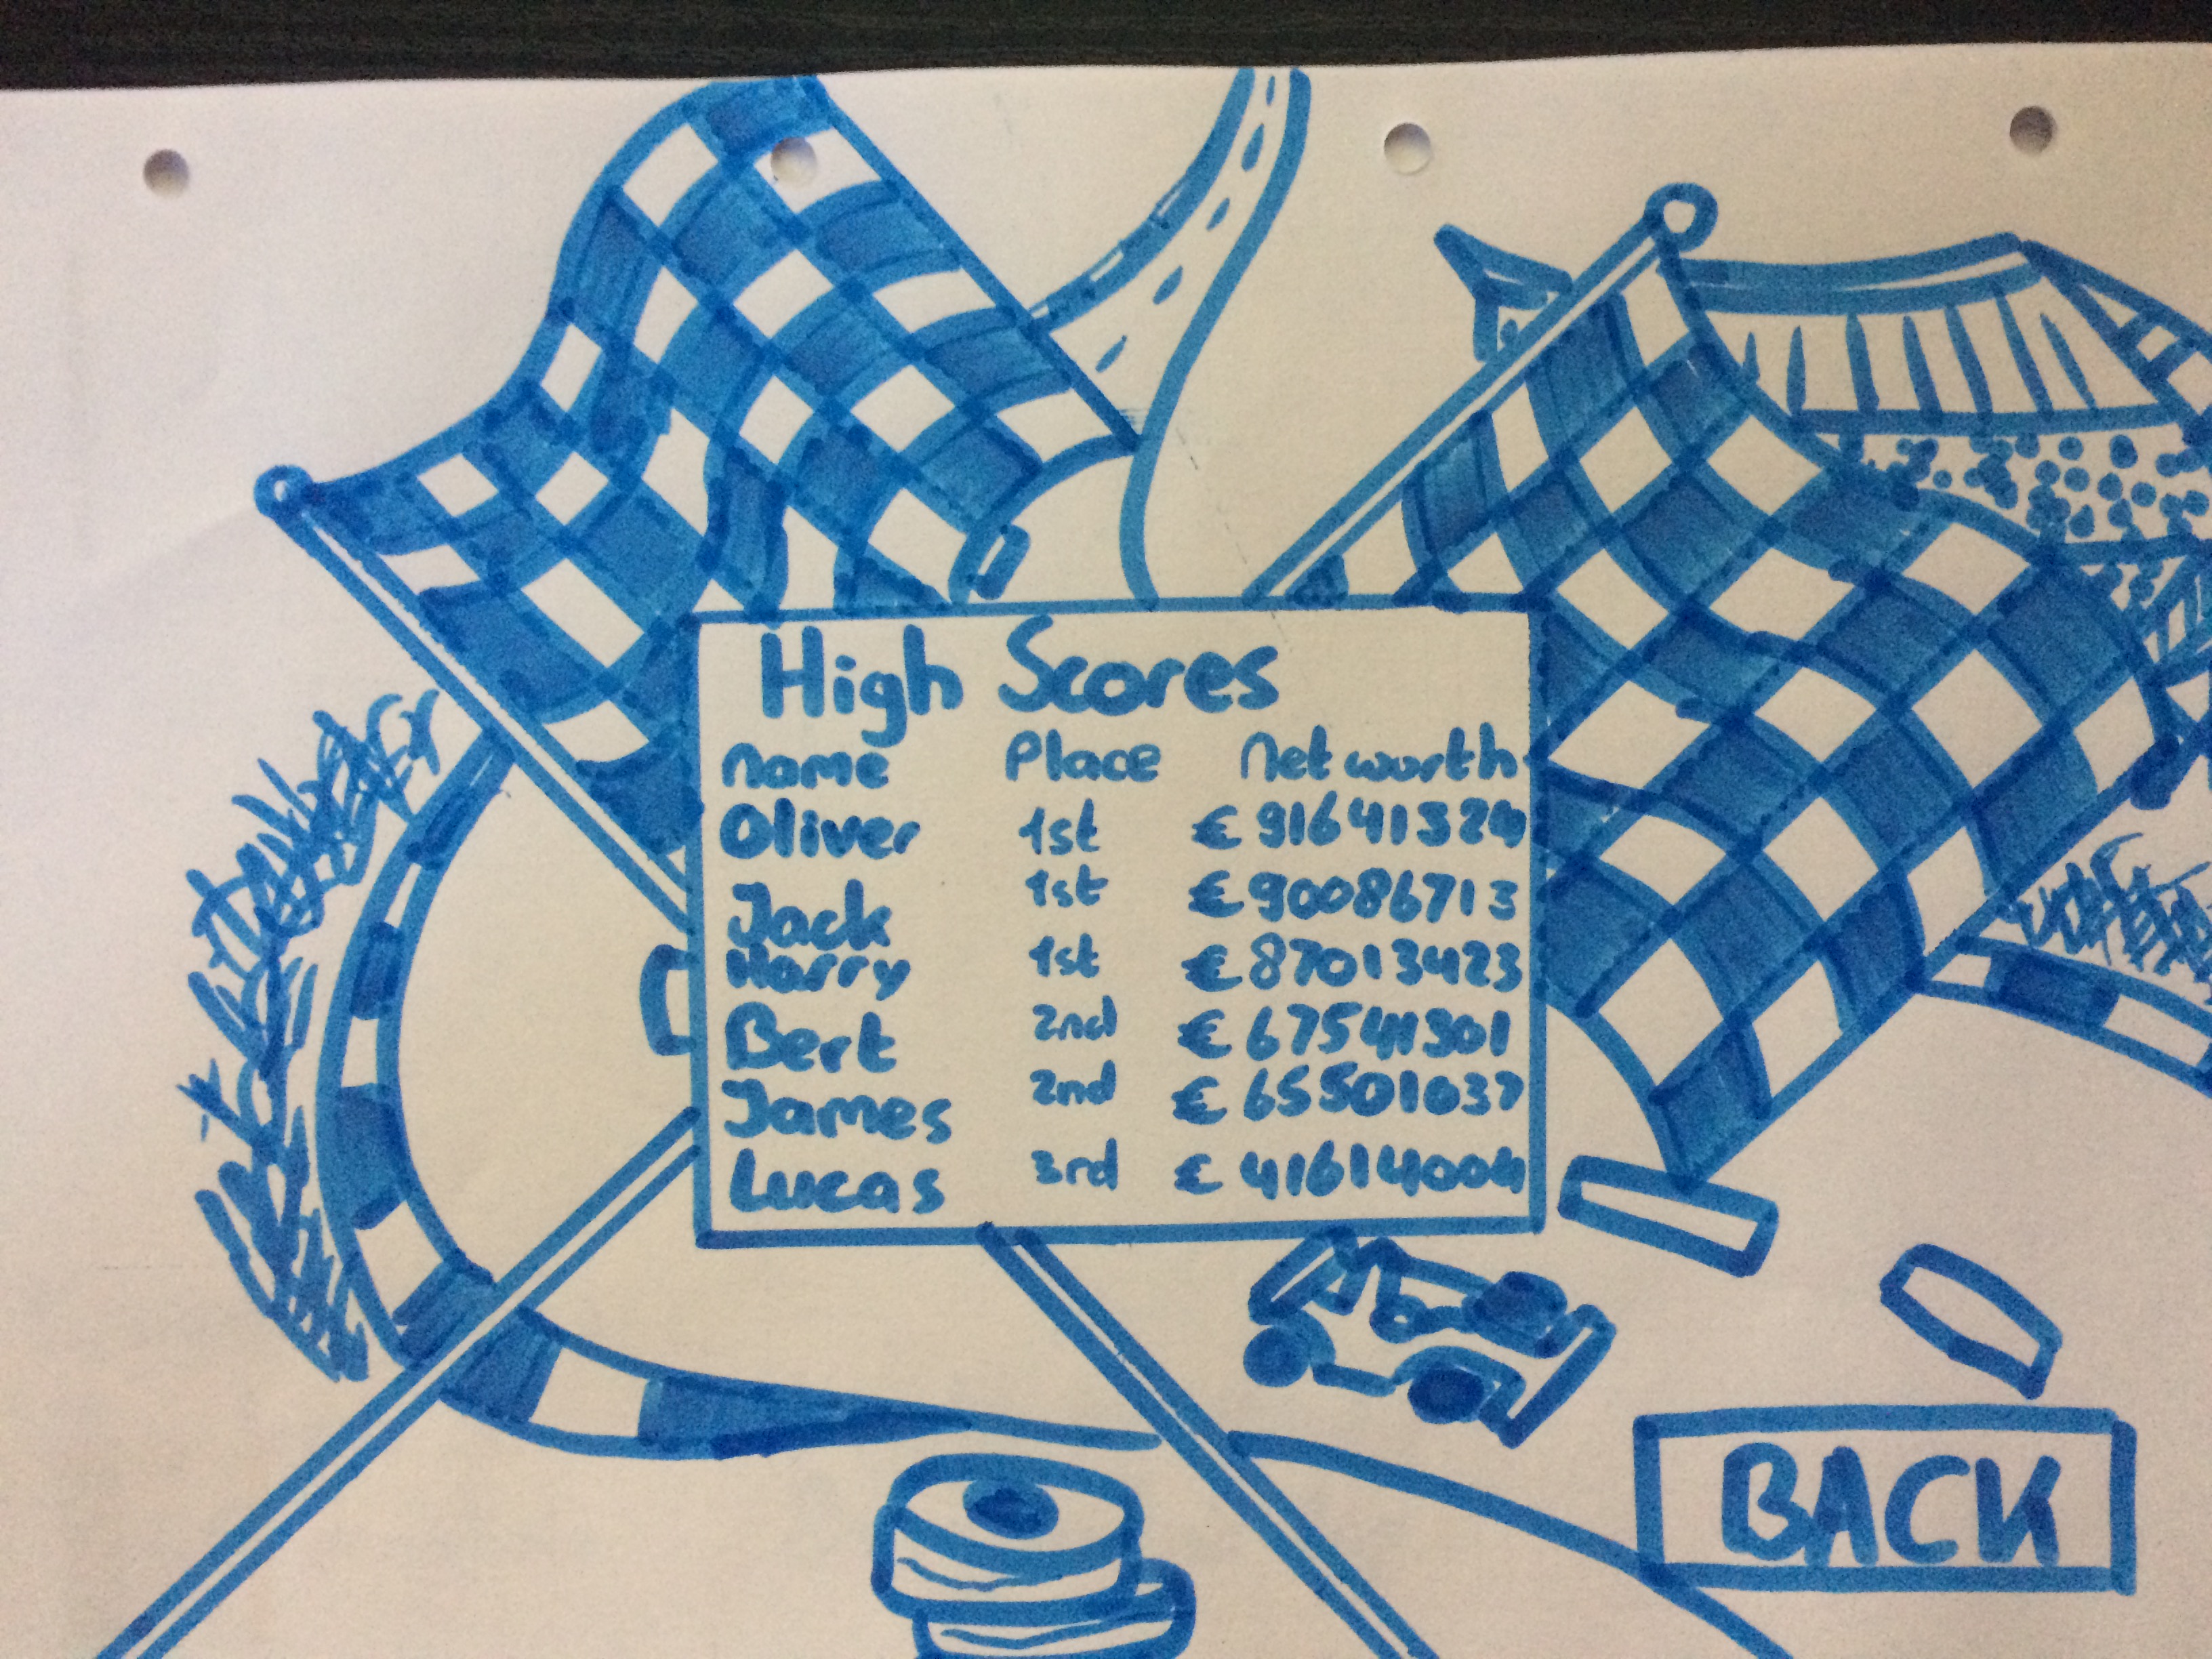 High Scores
name Place Net worth
Oliver 1st £ 91641324
Jack 1st £ 90086713
Harry 1st £ 87013423
Bert 2nd £ 67544301
James 2nd £ 65501637
Lucas 3rd £ 41614004
BACK